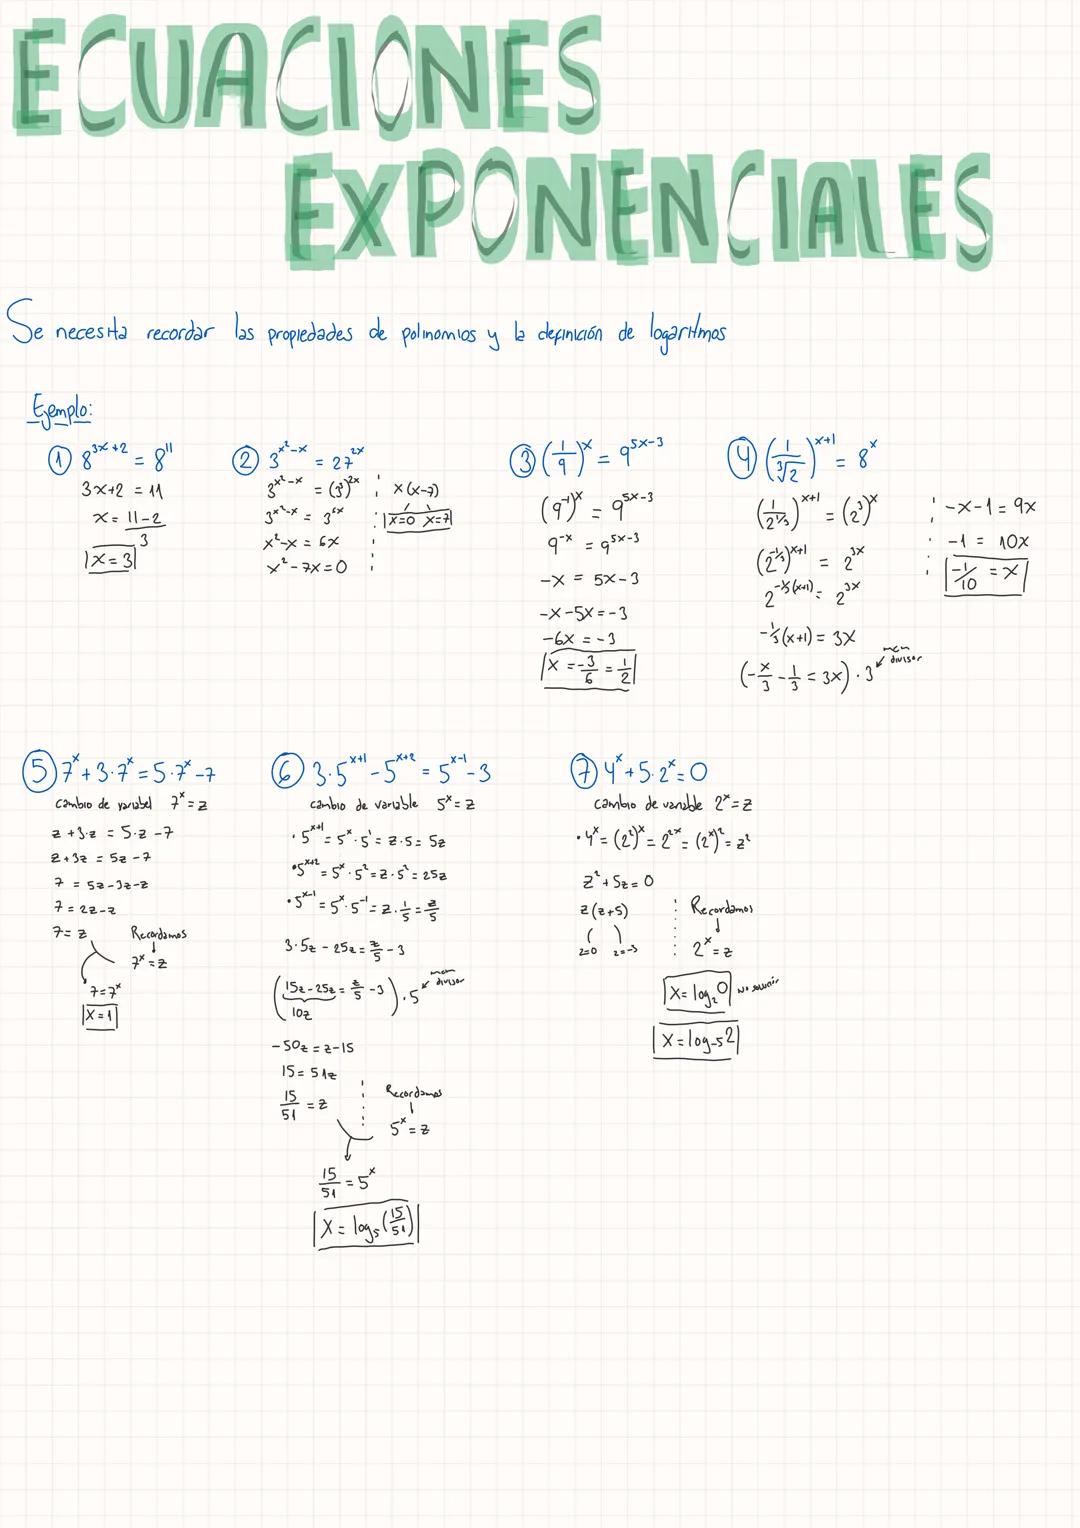 ECUACIONES
EXPONENCIALES
Se necesita recordar las propiedades de polinomios y la definición de logaritmos
Ejemplo:
① 8^(3x+2) = 8^11
3x+2 = 11
x = (11-2)/3
x = 3
② 3^(x²-x) = 27^(2x)
3^(x²-x) = (3³)^(2x)
3^(x²-x) = 3^(6x)
x²-x = 6x
x²-7x=0
x(x-7)
x=0 x=7
③ (1/9)^x = 9^(5x-3)
(9^-1)^x = 9^(5x-3)
9^-x = 9^(5x-3)
-x = 5x-3
-x-5x=-3
-6x = -3
x = -3/6 = 1/2
④ (1/∛2)^(x+1) = 8^x
(1/2^(1/3))^(x+1) = (2³)^x
(2^(-1/3))^(x+1) = 2^(3x)
2^(-1/3(x+1)) = 2^(3x)
-1/3(x+1) = 3x
(-x/3 - 1/3 = 3x)·3 mcm divisor
-x-1=9x
-1 = 10x
-1/10 = x
⑤ 7^x+3·7^x=5·7^x-7
cambio de variabel 7^x=z
z+3·z = 5·z-7
z+3z = 5z-7
7 = 5z-3z-z
7 = 2z-z
7= z
Recordamos
7^x=z
7=7^x
x=1
⑥ 3·5^(x+1)-5^(x+2) = 5^(x-1)-3
cambio de variable 5^x=z
·5^(x+1)=5^x·5^1=z·5=5z
·5^(x+2)=5^x·5²=z·5²=25z
·5^(x-1)=5^x·5^-1=z·1/5=z/5
3·5z-25z=z/5-3
(15z-25z=z/5-3)·5 mcm divisor
10z
-50z=z-15
15=51z
15/51=z
Recordamos
5^x=z
15/51=5^x
x=log₅(15/51)
⑦ 4^x+5·2^x=0
cambio de variable 2^x=z
·4^x=(2²)^x=2^(2x)=(2^x)²=z²
z²+5z=0
z(z+5)
z=0 z=-5
Recordamos
2^x=z
x=log₂0 No solución
x=log₋₅2